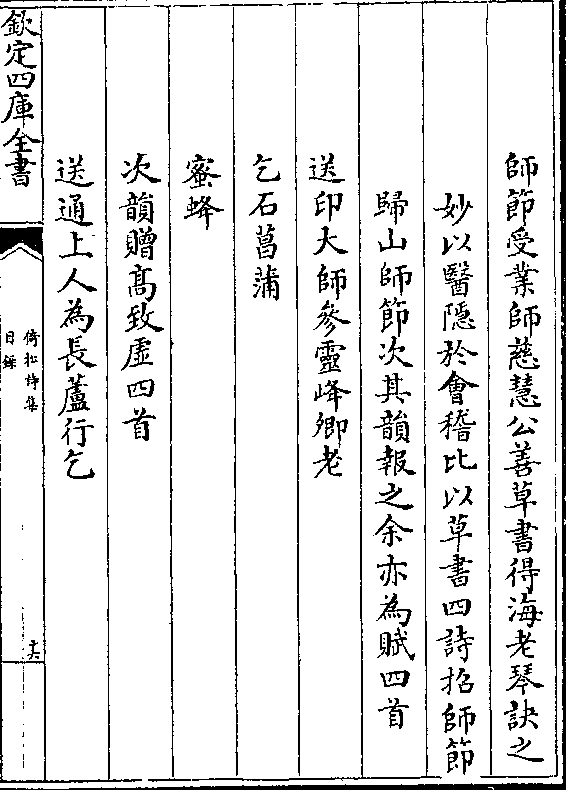 師節受業師慈慧公善草書得海老琴訣之
妙以醫隠於會稽比以草書四詩招師節
歸山師節次其韻報之余亦為賦四首
送印大師參靈峰卿老
乞石菖蒲
蜜蜂
次韻贈髙致虛四首
送通上人為長蘆行乞
欽定四庫全書
倚松詩集
目錄
十六